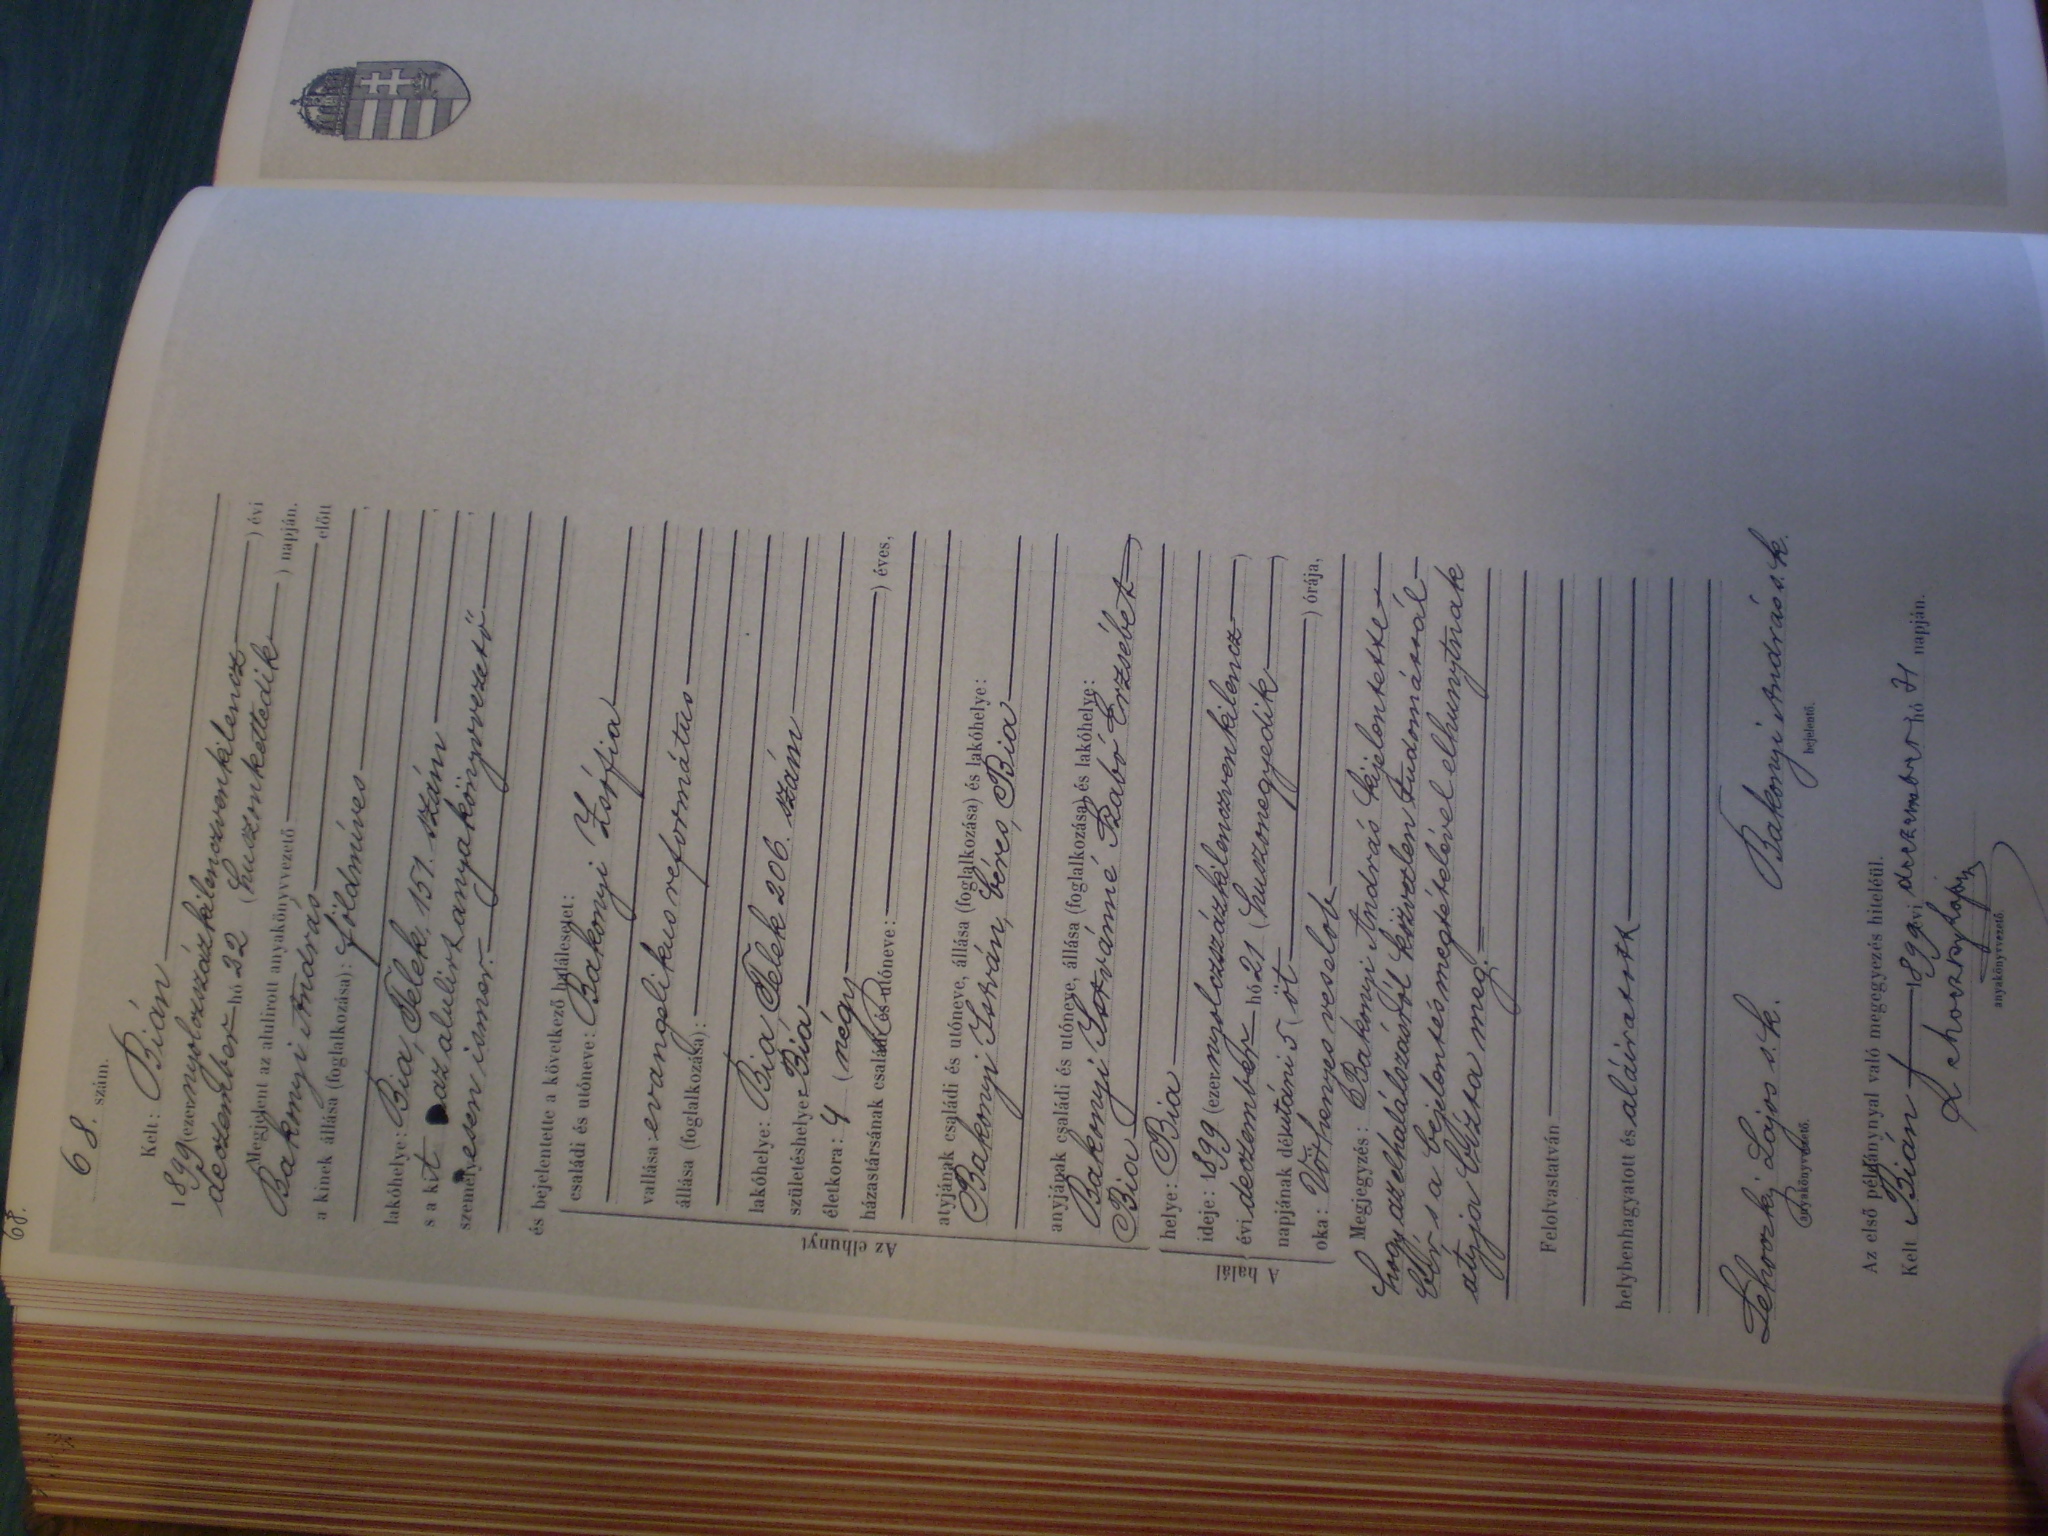 68.
68. szám.
Kelt: Bián
1899 (ezernyolczszázkilenczvenkilencz) évi
deczember hó 22 (huszonkettedik) napján.
Megjelent az alulirott anyakönyvvezető előtt
Bakonyi András
a kinek állása (foglalkozása): földmíves,
lakóhelye: Bia, Telek, 151. szám,
s a kit az alulirt anyakönyvvezető
személyesen ismer.
és bejelentette a következő halálesetet:
Az elhunyt
családi és utóneve: Bakonyi Zsófia
vallása: evangelikus református
állása (foglalkozása):
lakóhelye: Bia Telek 206. szám
születéshelye: Bia
életkora: 4 (négy) éves,
házastársának családi és utóneve:
atyjának családi és utóneve, állása (foglalkozása) és lakóhelye:
Bakonyi István, béres, Bia
anyjának családi és utóneve, állása (foglalkozása) és lakóhelye:
Bakonyi Istvánné Szabó Erzsébet
Bia
A halál
helye: Bia
ideje: 1899 (ezernyolczszázkilenczvenkilencz)
évi deczember hó 21 (huszonegyedik)
napjának délutáni 5 (öt) órája,
oka: Vörhenyes veselob
Megjegyzés: Bakonyi András kijelentette
hogy az elhalálozásról közvetlen tudomással
bír s a bejelentés megtételével elhunytnak
atyja bízta meg.
Felolvastatván
helybenhagyatott és aláiratott
Lehoczki Lajos s.k. Bakonyi András s.k.
anyakönyvvezető. bejelentő.
Az első példánynyal való megegyezés hiteléül.
Kelt Bián 1899 évi deczember hó 31 napján.
Lehoczky Lajos
anyakönyvvezető.